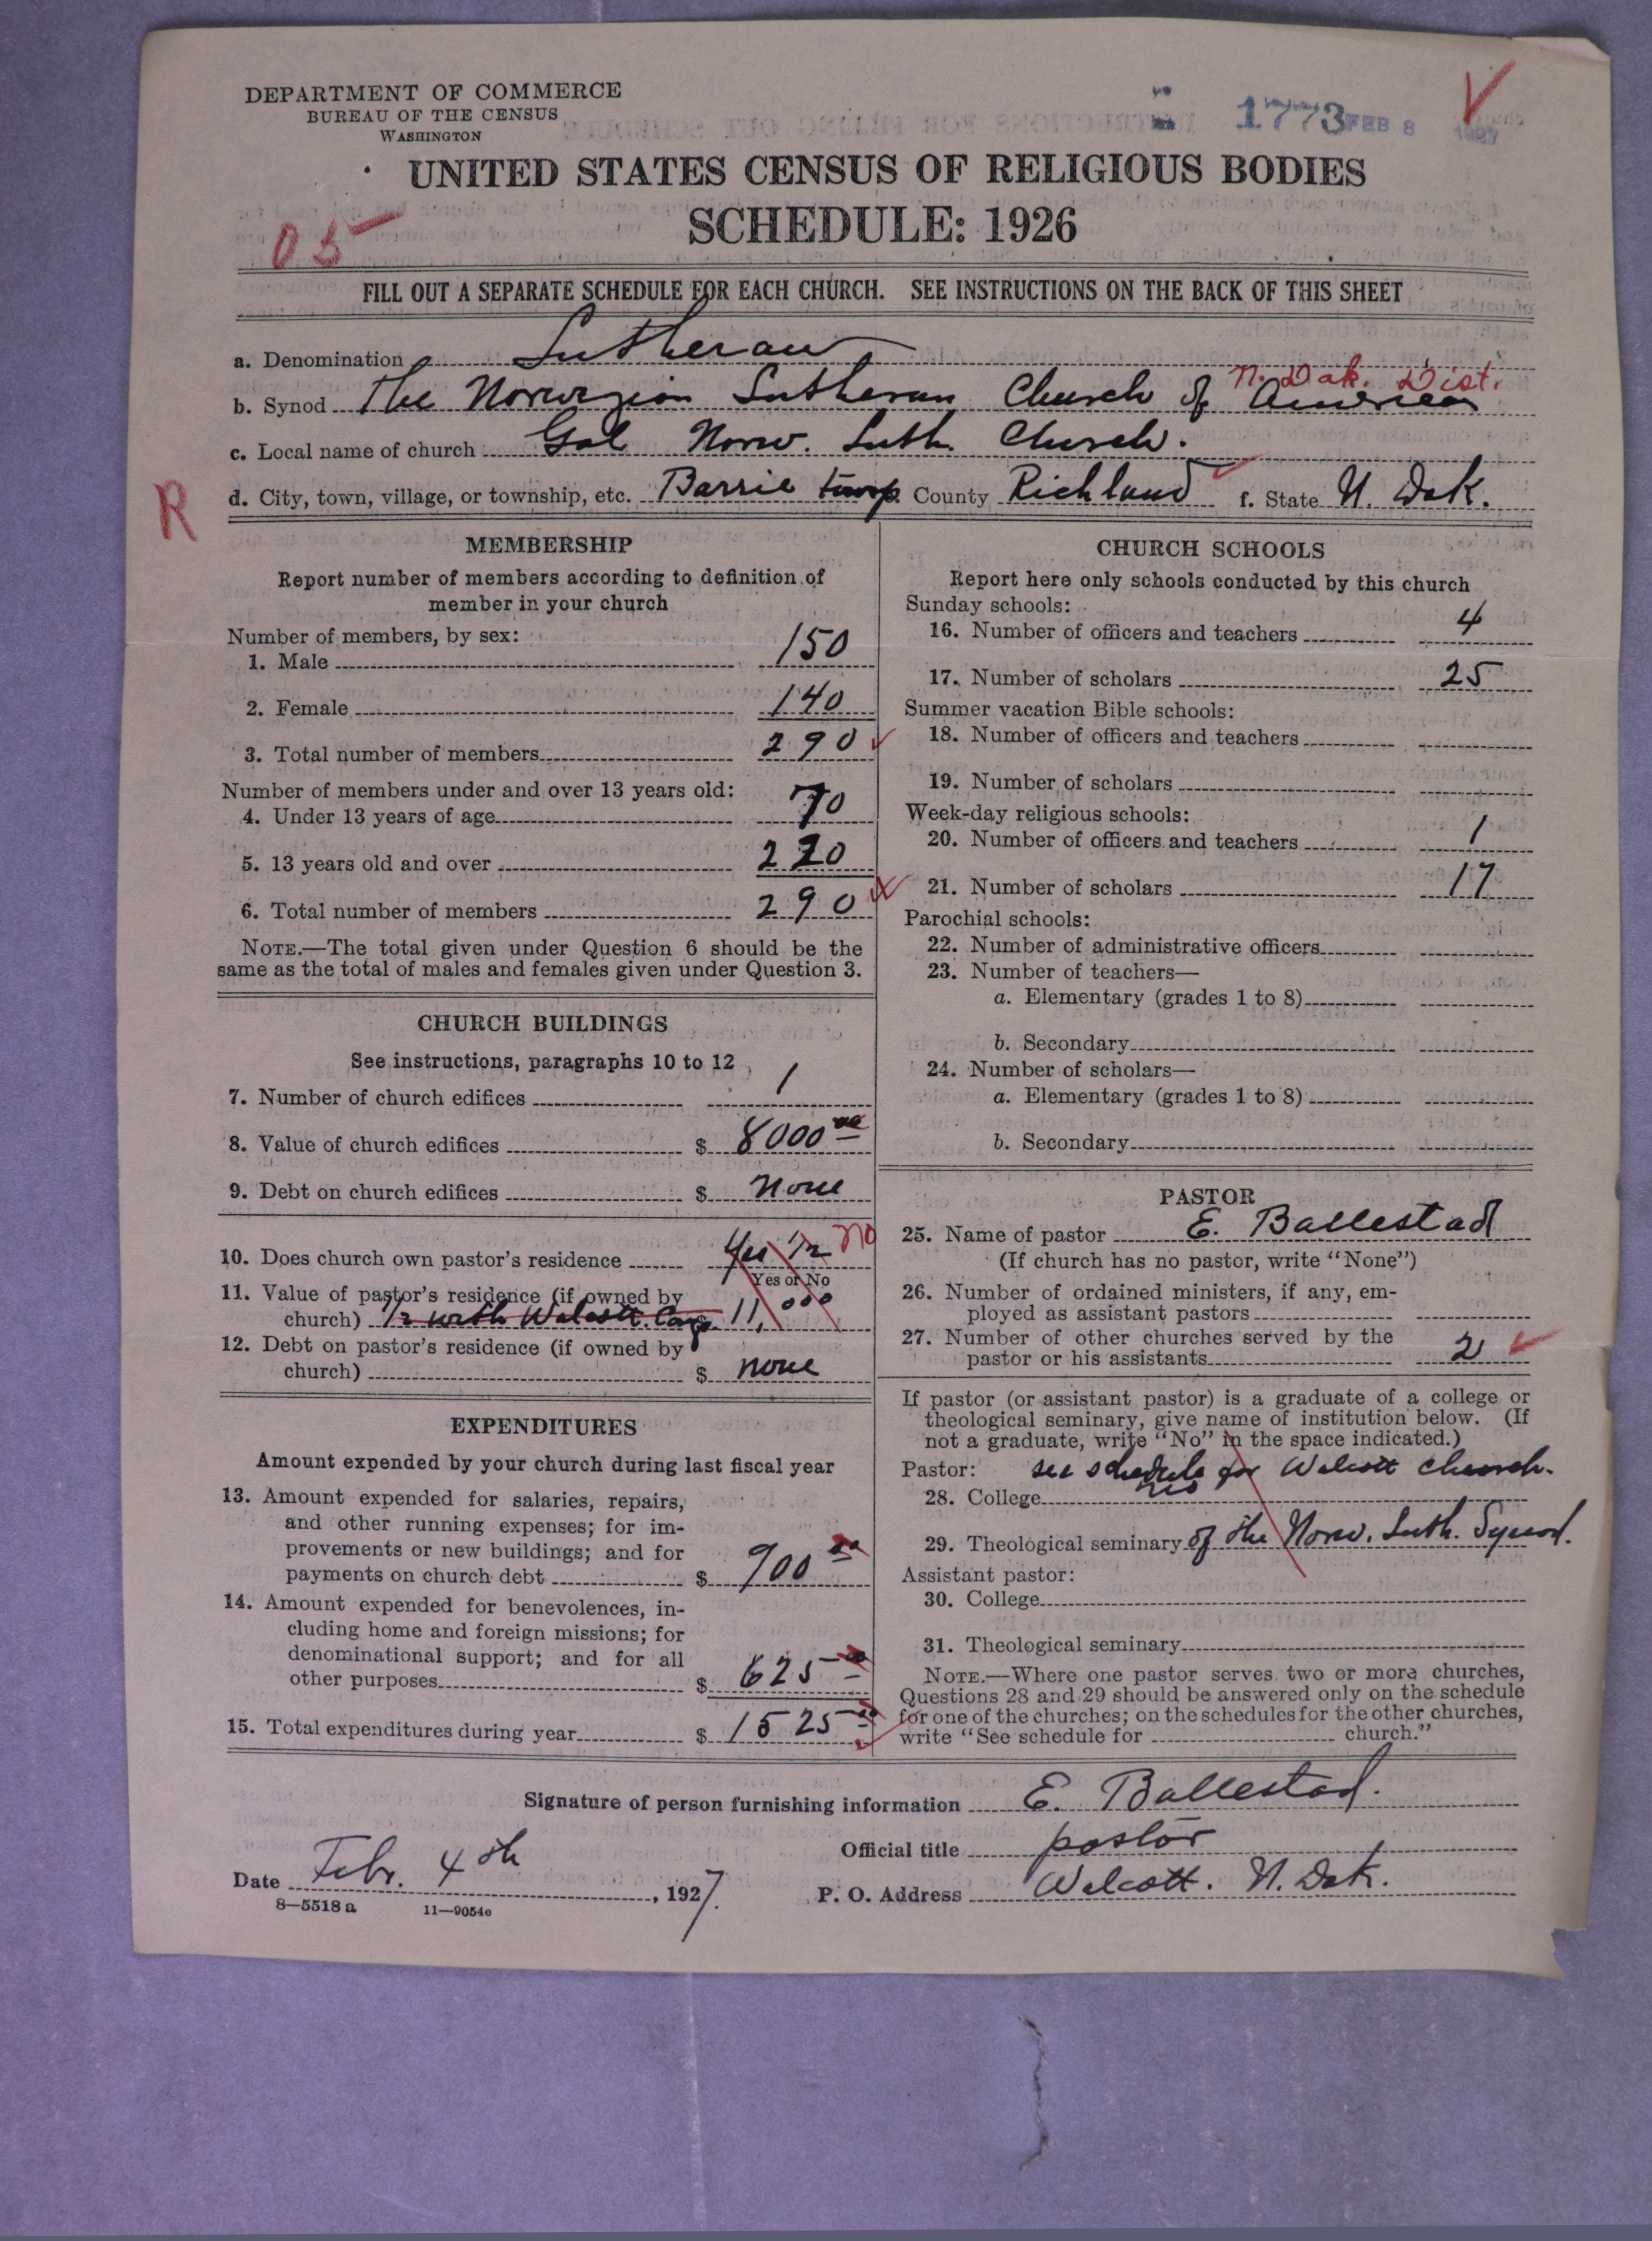 DEPARTMENT OF COMMERCE
BUREAU OF THE CENSUS
WASHINGTON
1773 FEB 8 1927
UNITED STATES CENSUS OF RELIGIOUS BODIES
SCHEDULE: 1926
05
FILL OUT A SEPARATE SCHEDULE FOR EACH CHURCH. SEE INSTRUCTIONS ON THE BACK OF THIS SHEET
a. Denomination Lutheran
N. Dak. Dist.
b. Synod The Norwegian Lutheran Church of America
c. Local name of church Gol Norw. Luth. Church.
R
d. City, town, village, or township, etc. Barrie County Richland f. State N. Dak.
MEMBERSHIP
Report number of members according to definition of
member in your church
Number of members, by sex:
1. Male 150
2. Female 140
3. Total number of members 290
Number of members under and over 13 years old:
4. Under 13 years of age 70
5. 13 years old and over 220
6. Total number of members 290
NOTE.—The total given under Question 6 should be the
same as the total of males and females given under Question 3.
CHURCH BUILDINGS
See instructions, paragraphs 10 to 12
7. Number of church edifices 1
8. Value of church edifices $ 8000 00
9. Debt on church edifices $ none
10. Does church own pastor's residence Yes 1/2 no
Yes or No
11. Value of pastor's residence (if owned by
church) 1/2 with Walcott Cong. $ 11,000
12. Debt on pastor's residence (if owned by
church) $ none
EXPENDITURES
Amount expended by your church during last fiscal year
13. Amount expended for salaries, repairs,
and other running expenses; for im-
provements or new buildings; and for
payments on church debt $ 900 00
14. Amount expended for benevolences, in-
cluding home and foreign missions; for
denominational support; and for all
other purposes $ 625 00
15. Total expenditures during year $ 1525 00
CHURCH SCHOOLS
Report here only schools conducted by this church
Sunday schools:
16. Number of officers and teachers 4
17. Number of scholars 25
Summer vacation Bible schools:
18. Number of officers and teachers
19. Number of scholars
Week-day religious schools:
20. Number of officers and teachers 1
21. Number of scholars 17
Parochial schools:
22. Number of administrative officers
23. Number of teachers—
a. Elementary (grades 1 to 8)
b. Secondary
24. Number of scholars—
a. Elementary (grades 1 to 8)
b. Secondary
PASTOR
25. Name of pastor E. Ballestad
(If church has no pastor, write "None")
26. Number of ordained ministers, if any, em-
ployed as assistant pastors
27. Number of other churches served by the
pastor or his assistants 2
If pastor (or assistant pastor) is a graduate of a college or
theological seminary, give name of institution below. (If
not a graduate, write "No" in the space indicated.)
Pastor: see schedule for Walcott church.
28. College no
29. Theological seminary of the Norw. Luth. Synod.
Assistant pastor:
30. College
31. Theological seminary
NOTE.—Where one pastor serves two or more churches,
Questions 28 and 29 should be answered only on the schedule
for one of the churches; on the schedules for the other churches,
write "See schedule for church."
Signature of person furnishing information E. Ballestad.
Official title pastor
Date Febr. 4th, 1927.
P. O. Address Walcott. N. Dak.
8—5518 a 11—9054c